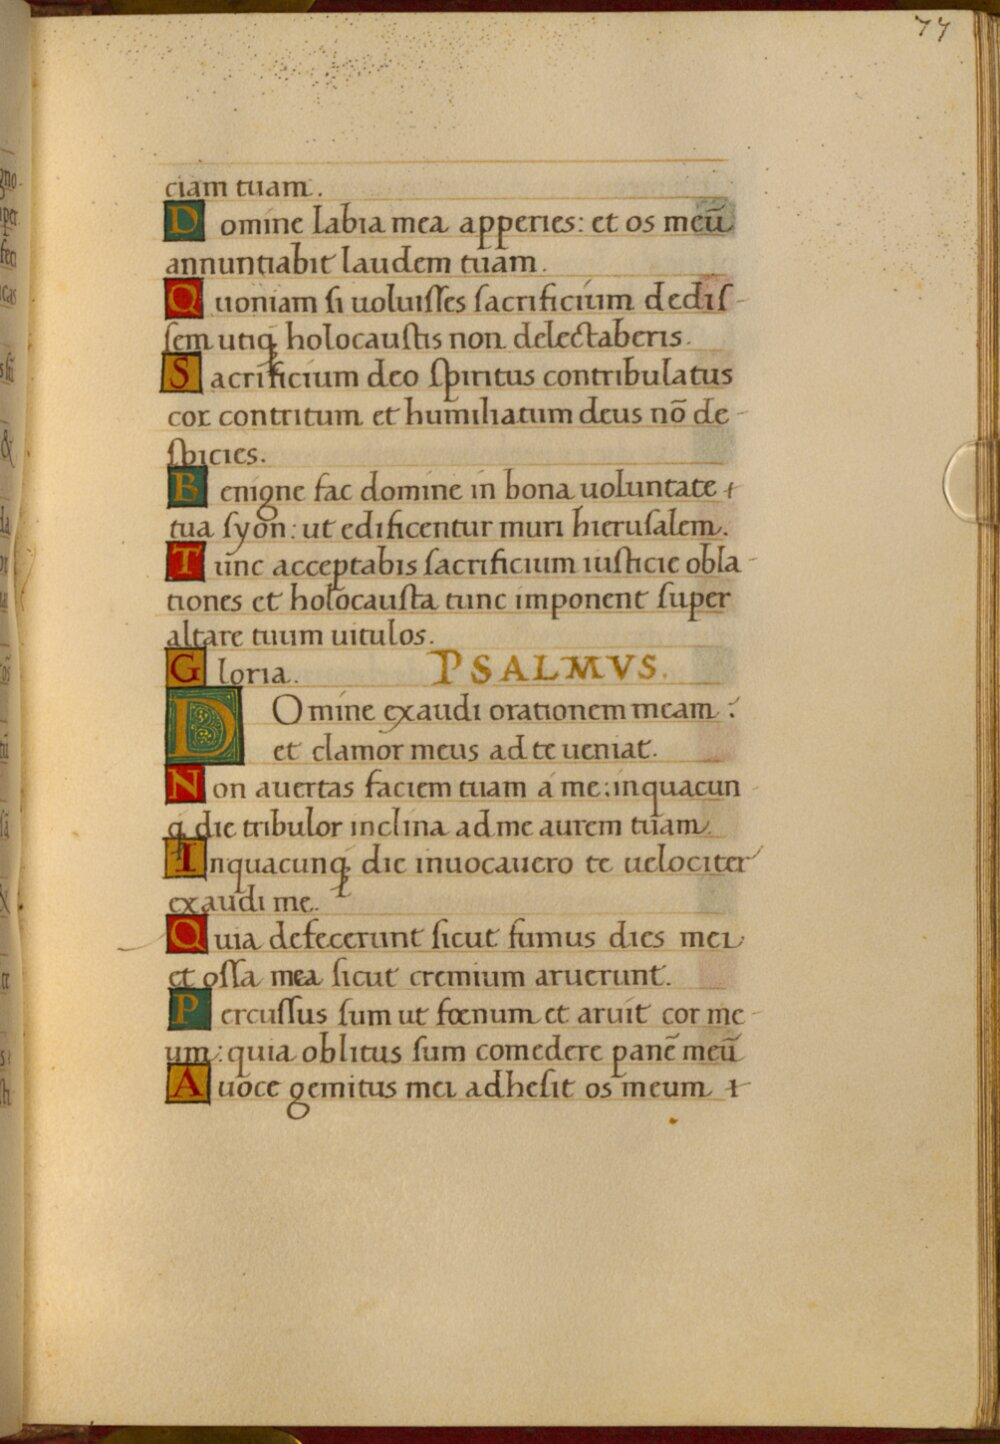 77
ciam tuam.
Domine labia mea apperies: et os meū
annuntiabit laudem tuam.
Quoniam si uoluisses sacrificium dedis-
sem utiqꝫ holocaustis non delectaberis.
Sacrificium deo spiritus contribulatus
cor contritum et humiliatum deus nō de-
spicies.
Benigne fac domine in bona uoluntate
tua syon: ut edificentur muri hierusalem.
Tunc acceptabis sacrificium iusticie obla-
tiones et holocausta tunc imponent super
altare tuum uitulos.
Gloria. PSALMVS.
DOmine exaudi orationem meam:
et clamor meus ad te ueniat.
Non auertas faciem tuam á me: inquacun-
qꝫ die tribulor inclina ad me aurem tuam.
Inquacunqꝫ die inuocauero te uelociter
exaudi me.
Quia defecerunt sicut fumus dies mei
et ossa mea sicut cremium aruerunt.
Percussus sum ut fœnum et aruit cor me-
um: quia oblitus sum comedere panē meū
A uoce gemitus mei adhesit os meum